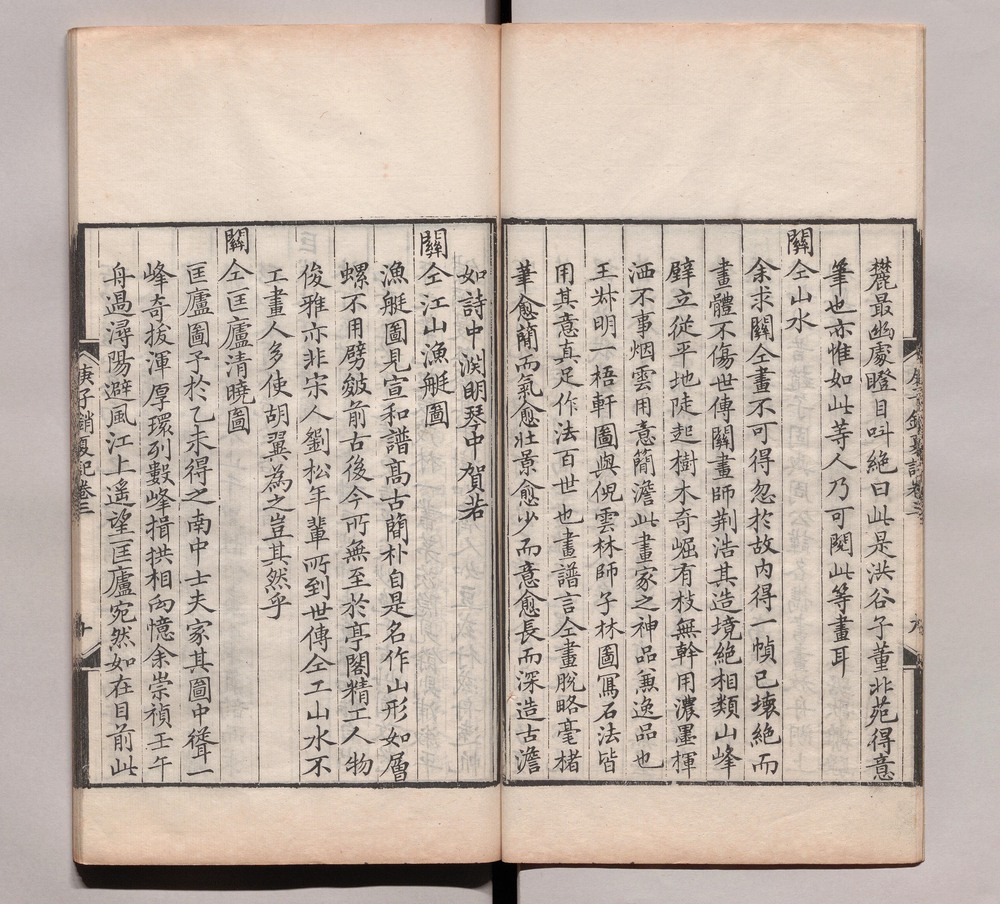 麓最幽處瞪目呌絶曰此是洪谷子董北苑得意
筆也亦惟如此等人乃可閱此等畫耳
關仝山水
余求關仝畫不可得忽於故内得一幀已壊絶而
畫體不傷世傳關畫師荆浩其造境絶相類山峰
壁立從平地陡起樹木奇崛有枝無幹用濃墨揮
洒不事烟雲用意簡澹此畫家之神品兼逸品也
王叔明一梧軒圖與倪雲林師子林圖寫石法皆
用其意真足作法百世也畫譜言仝畫脫略毫楮
筆愈簡而氣愈壯景愈少而意愈長而深造古澹
如詩中淵明琴中賀若
關仝江山漁艇圖
漁艇圖見宣和譜髙古簡朴自是名作山形如層
螺不用劈皴前古後今所無至於亭閣精工人物
俊雅亦非宋人劉松年輩所到世傳仝工山水不
工畫人多使胡翼為之豈其然乎
關仝匡廬清曉圖
匡廬圖予於乙未得之南中士夫家其圖中聳一
峰奇拔渾厚環列數峰揖拱相向憶余崇禎壬午
舟過潯陽避風江上遥望匡廬宛然如在目前此
庚子銷夏記卷三
十